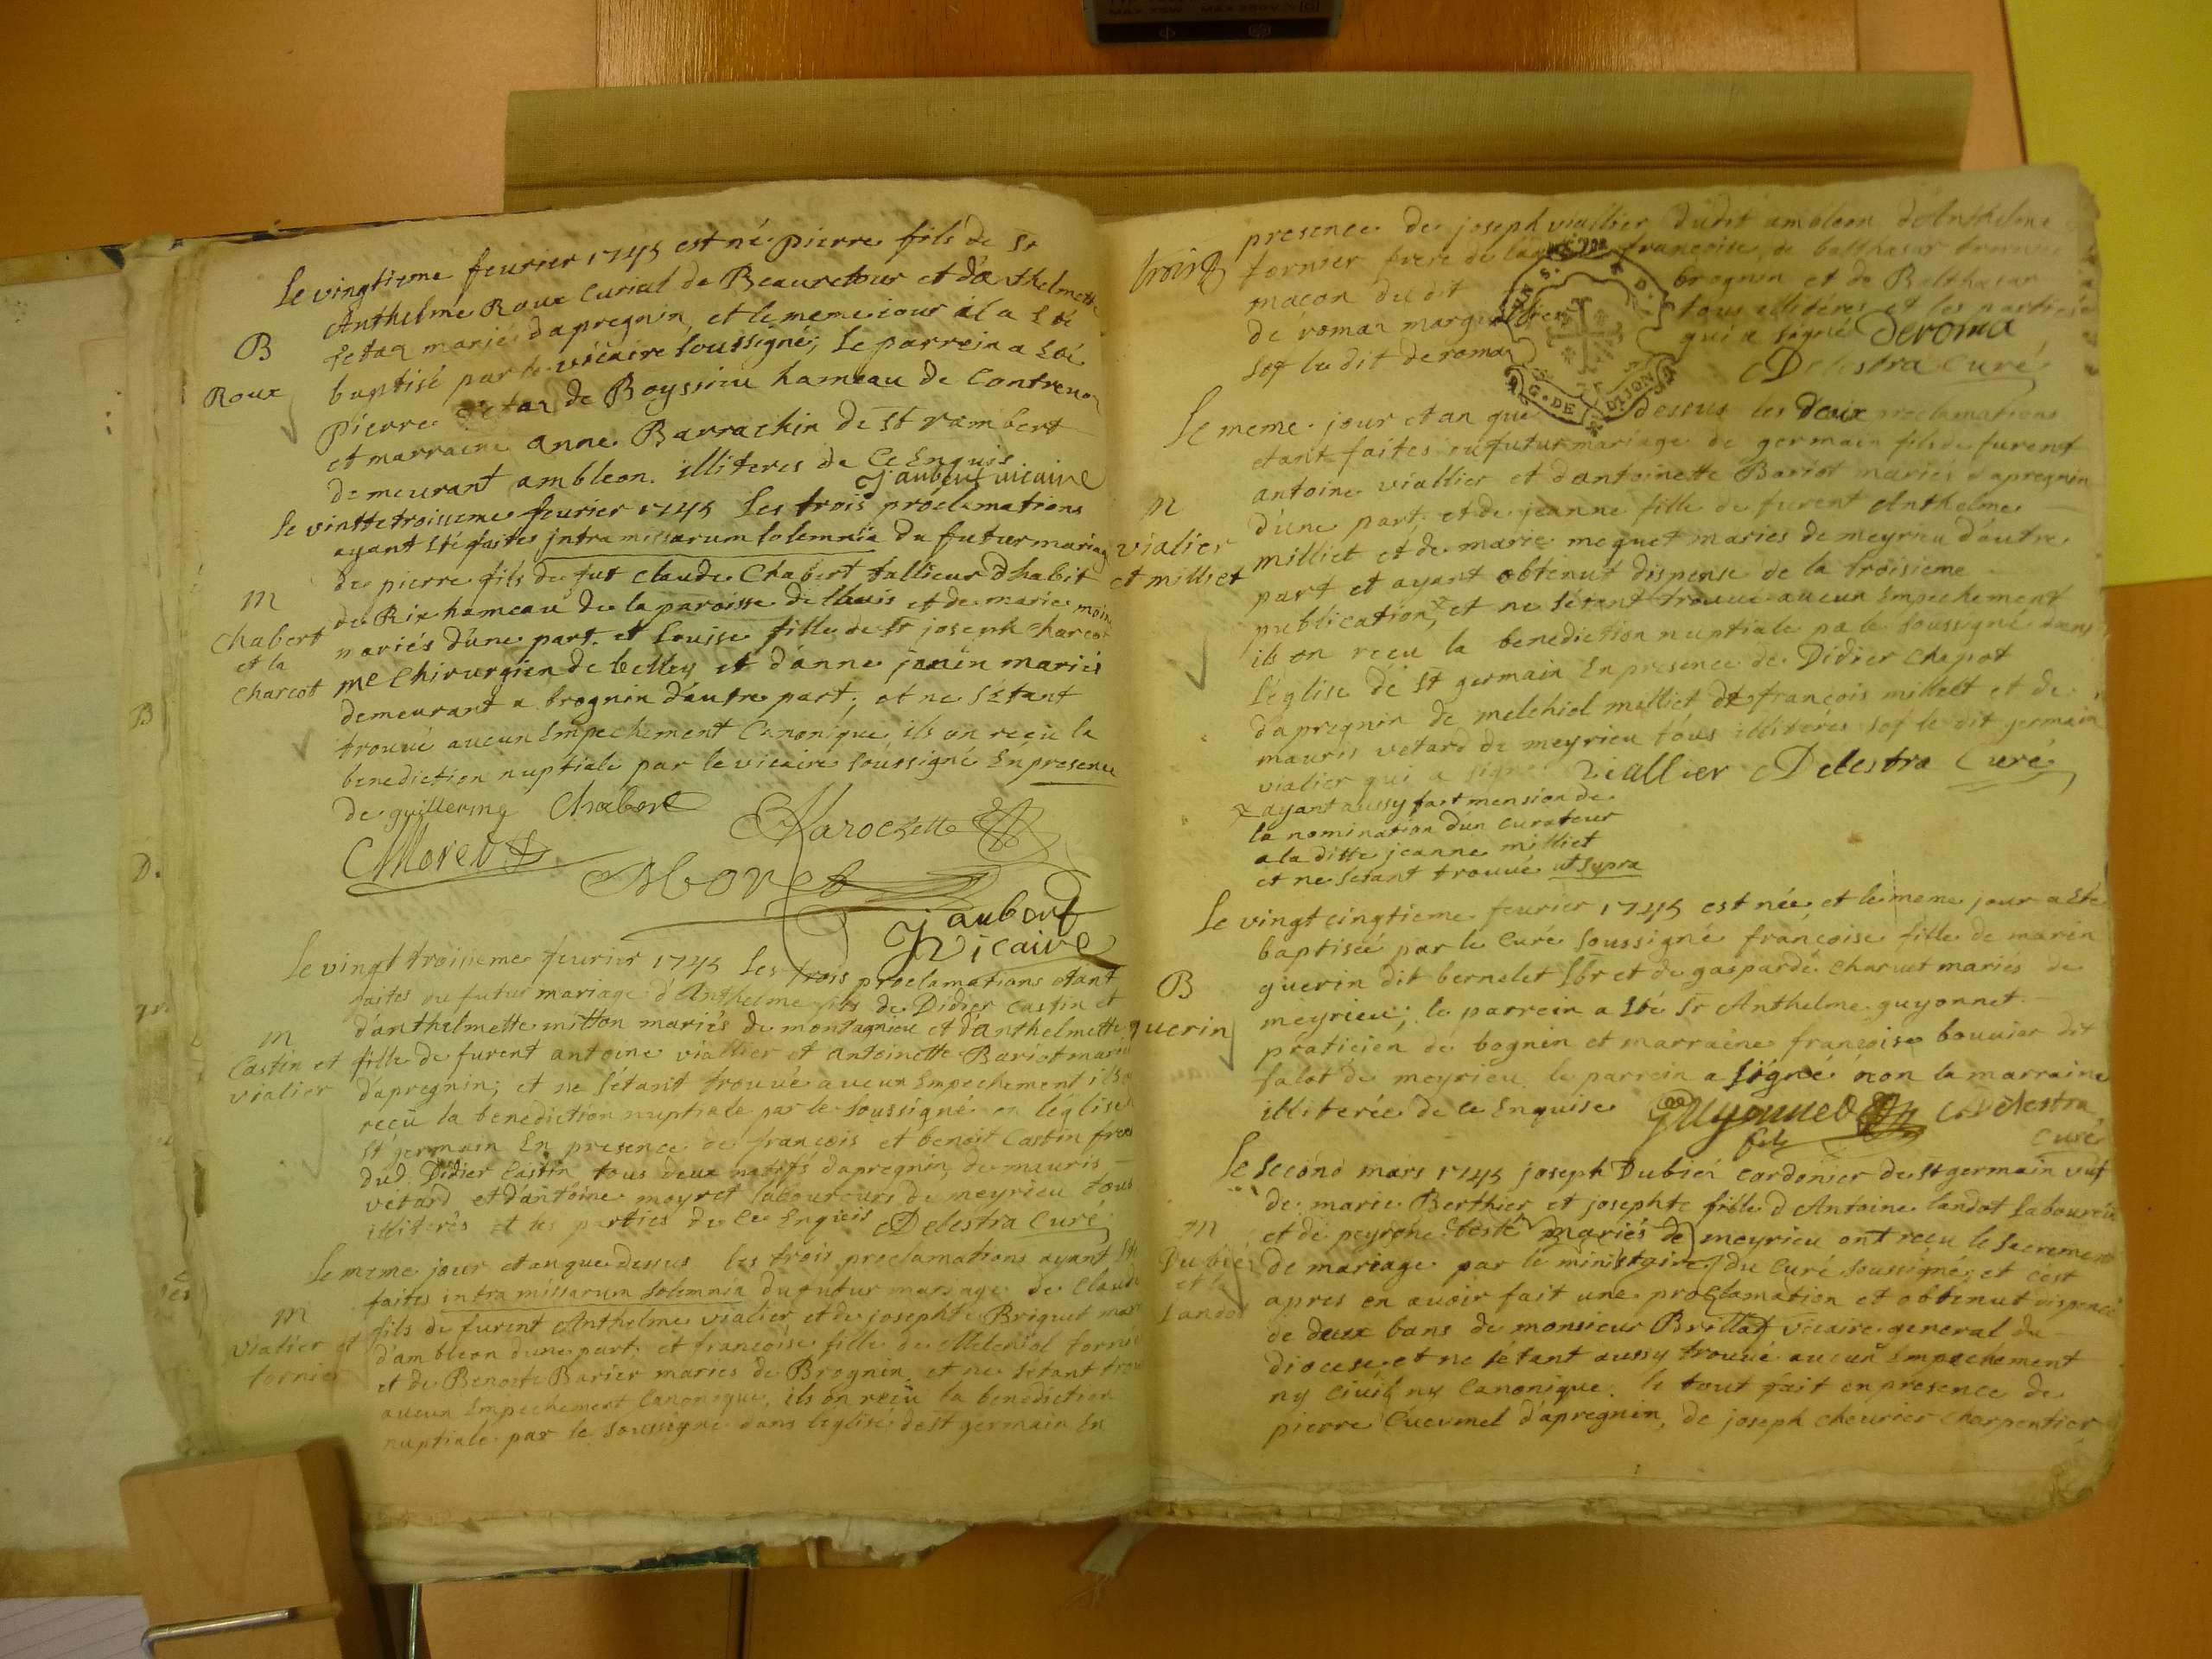 Le vingtieme feurier 1745 est né pierre fils de Sr
Anthelme Roux Curial de Beauretour et d'anthelmette
fetaz mariés d'apregnin, et le meme iour il a eté
B
Roux
baptisé par le vicaire soussigné; le parrein a eté
pierre fetaz de Boyssieu hameau de Contreuoz
et marraine anne Barrachin de st rambert
demeurant ambleon. illiteres de Ce Enquis
Jaubert vicaire
Le vinttetroisieme feurier 1745 Les trois proclamations
ayant eté faites intra missarum solemnia du futur mariage
de pierre fils de fut claude Chabert tallieur d'habit
M
Chabert
et la
Charcot
de Rix hameau de la paroisse de lhuis et de marie
mariés d'une part. et Louise fille de Sr joseph Charcot
me Chirurgien de belley et d'anne janin mariés
demeurant a brognin d'autre part; et ne s'etant
trouué aucun Empechement Canonique ils on reçu la
benediction nuptiale par le vicaire soussigné En presence
de guillerme Chabert
Larochette
Moret
Moret
Jaubert
Vicaire
Le vingt troisieme feurier 1745 Les trois proclamations etant
faites du futur mariage d'Anthelme fils de Didier Castin et
d'anthelmette mitton mariés de montagnieu et d'anthelmette
M
Castin et
vialier
fille de furent antoine viallier et antoinette Bariot mariés
d'apregnin; et ne s'etant trouué aucun Empechement ils on
reçu la benediction nuptiale par le soussigné en l'eglise
st germain En presence de françois et benoit Castin freres
dud. Didier Castin tous deux natifs d'apregnin, de mauris
vetard et d'antoine meyret laboureurs de meyrieu tous
illiterés et les parties de Ce Enquis Delestra Curé
Le meme jour et an que dessus les trois proclamations ayant eté
faites intra missarum solemnia du futur mariage de Claude
M
vialier et
tornier
fils de furent Anthelme vialier et de josephte Briquet mariés
d'ambleon d'une part. et françoise fille de Melchiol tornier
et de Benoite Barier maries de Brognin, et ne s'etant trouué
aucun Empechement Canonique, ils on reçu la benediction
nuptiale par le soussigné dans l'eglise de st germain En
presence de joseph viallier dudit ambleon d'Anthelme
tornier frere de laditte françoise, de balthasar
maçon du dit brognin et de Balthasar
de romaz marguillier tous illiterés et les parties
sof ledit de romaz qui a signé Deroma
Delestra Curé
Le meme jour et an que dessus les deux proclamations
etant faites du futur mariage de germain fils de furent
antoine viallier et d'antoinette Bariot mariés d'apregnin
M
vialier
et milliet
d'une part. et de jeanne fille de furent Anthelme
milliet et de marie meguet maries de meyrieu d'autre
part et ayant obtenut dispense de la troisieme
publication, et ne s'etant trouué aucun Empechement
ils on reçu la benediction nuptiale pa le soussigné dans
l'eglise de st germain En presence de Didier Chapot
d'apregnin de melchiol milliet de françois milliet et de
mauris vetard de meyrieu tous illiterés sof le dit germain
vialier qui a signé Viallier Delestra Curé
ayant aussy fait mension de
la nomination d'un curateur
a la ditte jeanne milliet
et ne s'etant trouué ut supra
Le vingt cingtieme feurier 1745 est née, et le meme jour a eté
baptiseé par le Curé soussigné françoise fille de marin
B
guerin
guerin dit bernelet Lbr et de gasparde charuet mariés de
meyrieu; le parrein a eté Sr Anthelme guyonnet
praticien de bognin et marraine françoise bouuier dit
salot de meyrieu le parrein a signé non la marraine
illiterée de Ce Enquise Guyonnet fils Delestra
Curé
Le second mars 1745 joseph Dubiei Cordonier de st germain vuf
de marie Berthier et josephte fille d'Antoine landot Laboureur
M
Dubiei
et la
Landot
et de peyrone teste mariés de meyrieu ont reçu le sacrement
de mariage par le ministaire du Curé soussigné; et c'est
apres en auoir fait une proclamation et obtenut dispence
de deux bans de monsieur Brillat vicaire general du
diocese et ne s'etant aussy trouué aucun Empechement
ny Ciuil ny Canonique. le tout fait en presence de
pierre d'apregnin, de joseph cheurier charpentier